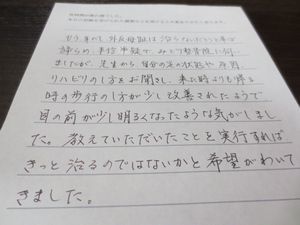 もう手術しか外反母趾は治らないだろうと半ば
諦らめ、半信半疑で、みとう整骨院に伺い
ましたが、先生から、自分の足の状態や原因、
リハビリの仕方をお聞きし、来た時よりも帰る
時の歩行の仕方が少し改善されたようで
目の前が少し明るくなったような気がしまし
た。教えていただいたことを実行すれば
きっと治るのではないかと希望がわいて
きました。